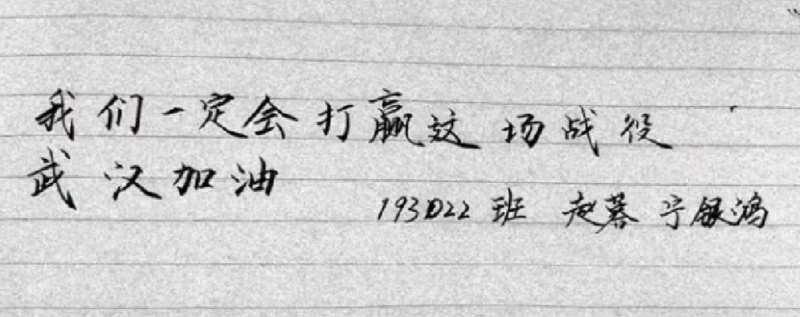 我们一定会打赢这场战役
武汉加油
193022班 赵蓉 宁银鸿